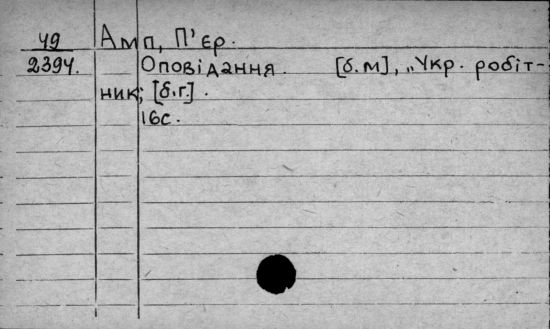 49 Амп, П'єр.
2394. Оповідання. [б.м], „Укр. робіт-
ник; [б.г].
16с.